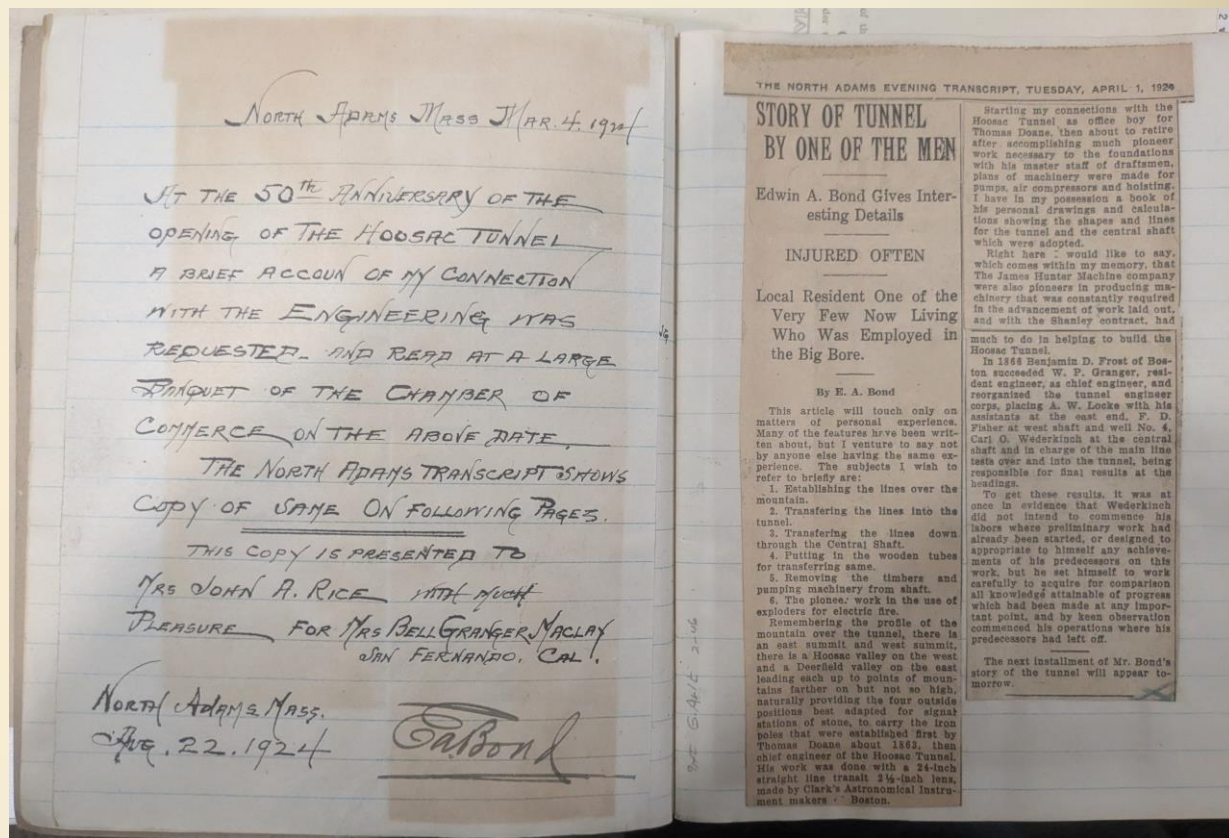 North Adams Mass Mar. 4. 1924
At the 50th Anniversary of the
opening of the Hoosac Tunnel
a brief accoun of my connection
with the Engineering was
requested_ and read at a large
Banquet of the Chamber of
Commerce on the above date.
The North Adams Transcript shows
copy of same on following pages.
This copy is presented to
Mrs John A. Rice with much
pleasure for Mrs Bell Granger Maclay
San Fernando. Cal.
North Adams Mass.
Aug. 22. 1924
E.A. Bond
THE NORTH ADAMS EVENING TRANSCRIPT, TUESDAY, APRIL 1, 1924
STORY OF TUNNEL
BY ONE OF THE MEN
Edwin A. Bond Gives Inter-
esting Details
INJURED OFTEN
Local Resident One of the
Very Few Now Living
Who Was Employed in
the Big Bore.
By E. A. Bond
This article will touch only on
matters of personal experience.
Many of the features have been writ-
ten about, but I venture to say not
by anyone else having the same ex-
perience. The subjects I wish to
refer to briefly are:
1. Establishing the lines over the
mountain.
2. Transfering the lines into the
tunnel.
3. Transfering the lines down
through the Central Shaft.
4. Putting in the wooden tubes
for transferring same.
5. Removing the timbers and
pumping machinery from shaft.
6. The pioneer work in the use of
exploders for electric fire.
Remembering the profile of the
mountain over the tunnel, there is
an east summit and west summit,
there is a Hoosac valley on the west
and a Deerfield valley on the east
leading each up to points of moun-
tains farther on but not so high,
naturally providing the four outside
positions best adapted for signal
stations of stone, to carry the iron
poles that were established first by
Thomas Doane about 1863, then
chief engineer of the Hoosac Tunnel.
His work was done with a 24-inch
straight line transit 2½-inch lens,
made by Clark's Astronomical Instru-
ment makers Boston.
Starting my connections with the
Hoosac Tunnel as office boy for
Thomas Doane, then about to retire
after accomplishing much pioneer
work necessary to the foundations
with his master staff of draftsmen,
plans of machinery were made for
pumps, air compressors and hoisting.
I have in my possession a book of
his personal drawings and calcula-
tions showing the shapes and lines
for the tunnel and the central shaft
which were adopted.
Right here I would like to say,
which comes within my memory, that
The James Hunter Machine company
were also pioneers in producing ma-
chinery that was constantly required
in the advancement of work laid out,
and with the Shanley contract, had
much to do in helping to build the
Hoosac Tunnel.
In 1866 Benjamin D. Frost of Bos-
ton succeeded W. P. Granger, resi-
dent engineer, as chief engineer, and
reorganized the tunnel engineer
corps, placing A. W. Locke with his
assistants at the east end, F. D.
Fisher at west shaft and well No. 4,
Carl O. Wederkinch at the central
shaft and in charge of the main line
tests over and into the tunnel, being
responsible for final results at the
headings.
To get these results, it was at
once in evidence that Wederkinch
did not intend to commence his
labors where preliminary work had
already been started, or designed to
appropriate to himself any achieve-
ments of his predecessors on this
work, but he set himself to work
carefully to acquire for comparison
all knowledge attainable of progress
which had been made at any impor-
tant point, and by keen observation
commenced his operations where his
predecessors had left off.
The next installment of Mr. Bond's
story of the tunnel will appear to-
morrow.